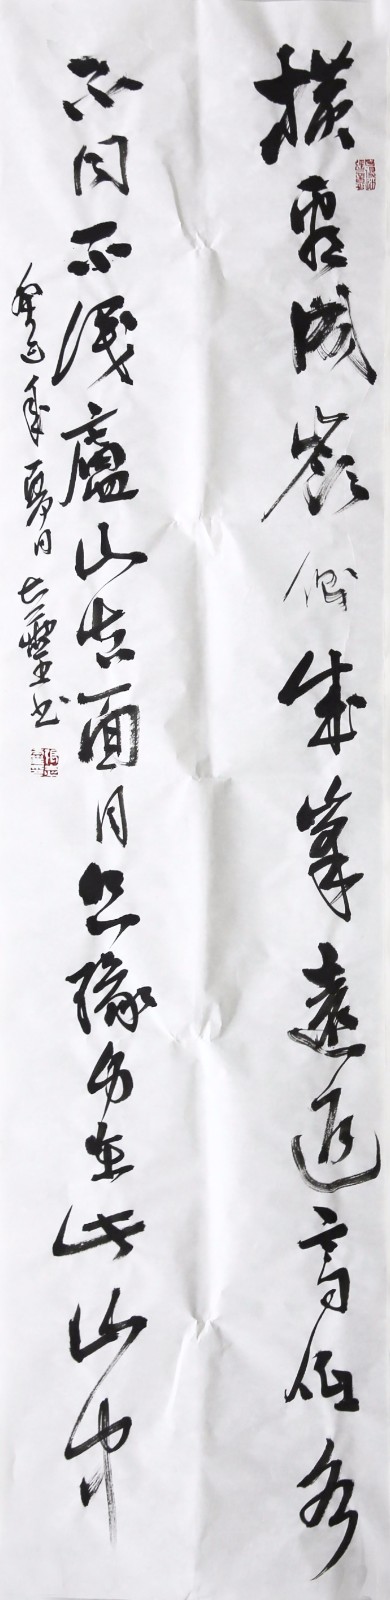 橫看成嶺側成峯遠近高低各
不同不識廬山真面目只緣身在此山中
癸巳年夏月書